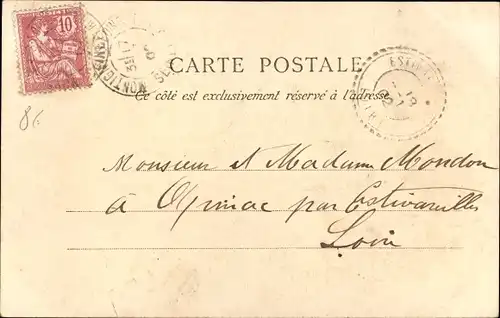 10
CARTE POSTALE
Ce côté est exclusivement réservé à l'adresse
Monsieur et Madame Mondon
à Apinac par Estivareilles
Loire